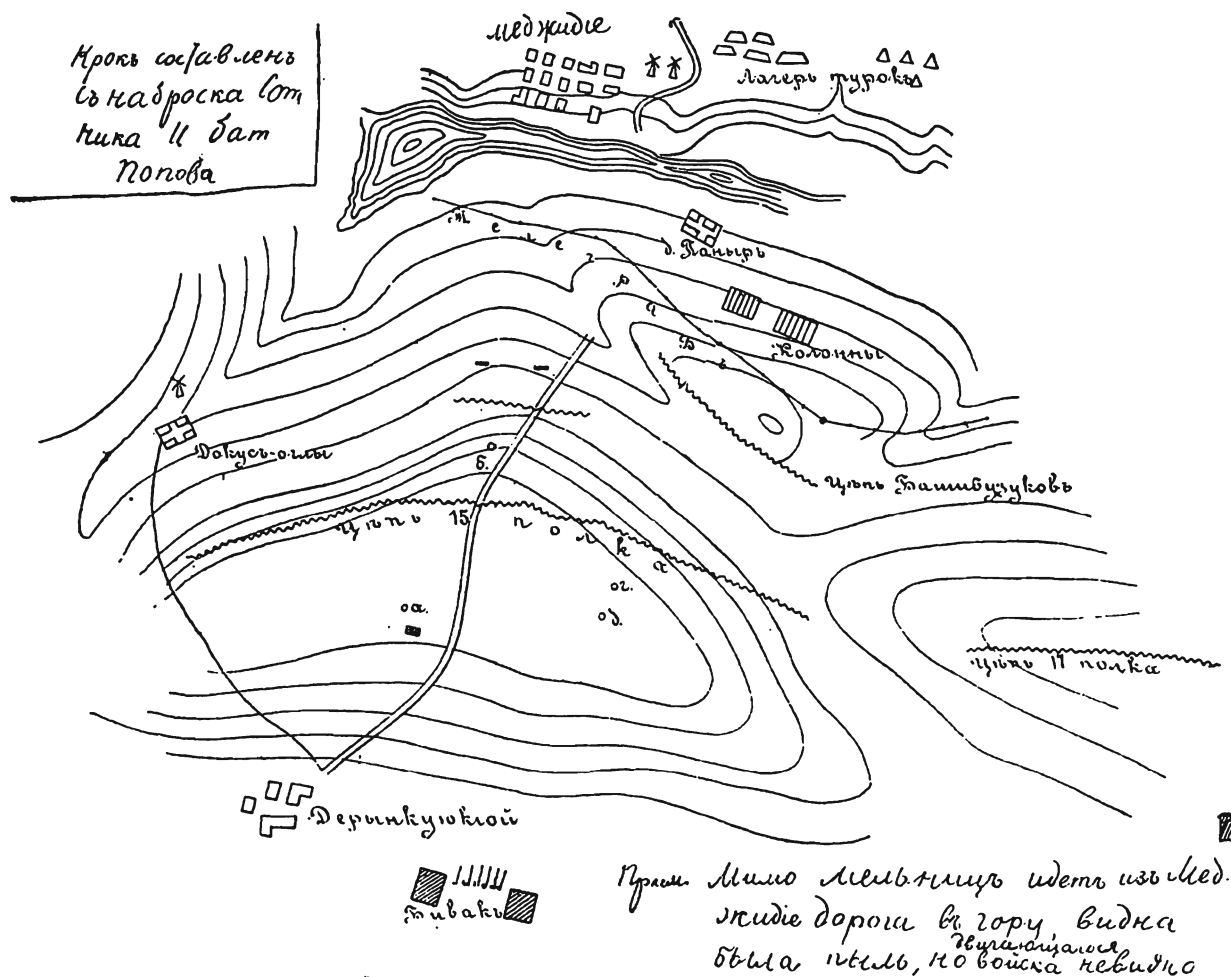 Меджидіе
Крокъ составленъ
съ наброска Сот
ника 11 бат
Попова
Лагерь турокъ
д. Паныръ
Колонны
Докусъ-оглы
б.
Цѣпь Башибузуковъ
Цѣпь 15 полка
г.
а.
д.
Цѣпь 17 полка
Дерынкуюкіой
Бивакъ
Прим. Мимо мельницъ идетъ изъ Мед-
жидіе дорога въ гору, видна
была пыль, но двигающагося войска невидно